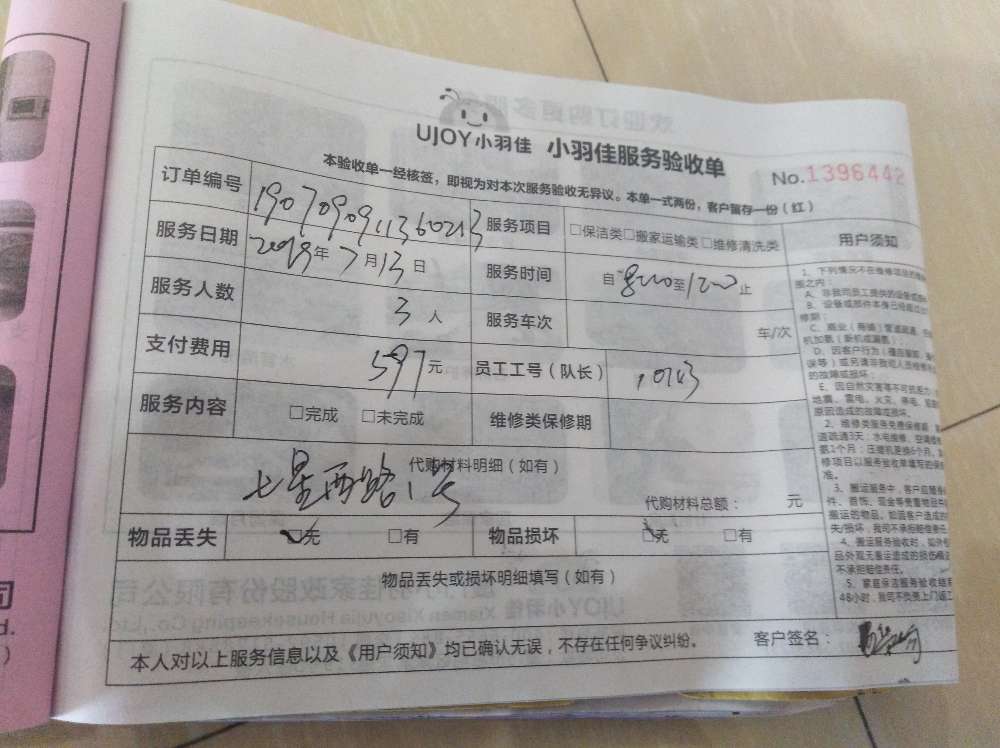 UJOY小羽佳 小羽佳服务验收单
No.1396442
本验收单一经核签，即视为对本次服务验收无异议。本单一式两份，客户留存一份（红）
订单编号 服务项目 □保洁类□搬家运输类□维修清洗类
服务日期 2019年7月13日 服务时间 自 8:00至1200止
服务人数 3人 服务车次 车/次
支付费用 597元 员工工号（队长）
服务内容 □完成 □未完成 维修类保修期
代购材料明细（如有）
七星西路1号
代购材料总额： 元
物品丢失 ☑无 □有 物品损坏 ☑无 □有
物品丢失或损坏明细填写（如有）
本人对以上服务信息以及《用户须知》均已确认无误，不存在任何争议纠纷。 客户签名：
用户须知
1、下列情况不在维修
围之内：
A、非我司员工提供的设备或
B、设备或部件本身已经超过
修期；
C、商业（商铺）管道疏通，
机加氨（新机或漏氨）；
D、因客户行为
误等）或另请非我司人员维修
的故障或损坏；
E、因自然灾害等不可抗
地震、雷电、火灾、停电
原因造成的故障或损坏。
2、维修类服务免费保修期
道疏通3天；水电维修、空调
氨1个月；压缩机更换6个月，
修项目以服务验收单填写的保
准。
3、搬运服务中，客户应
件、首饰、现金等贵重物品
搬运的物品，如因客户造成的
失/损坏，我司不承担赔偿责任
4、搬运服务验收时，如外
品外观无搬运造成的损伤
不承担赔偿责任。
5、家庭保洁服务验收结
48小时，我司不负责上门返工
司
d.